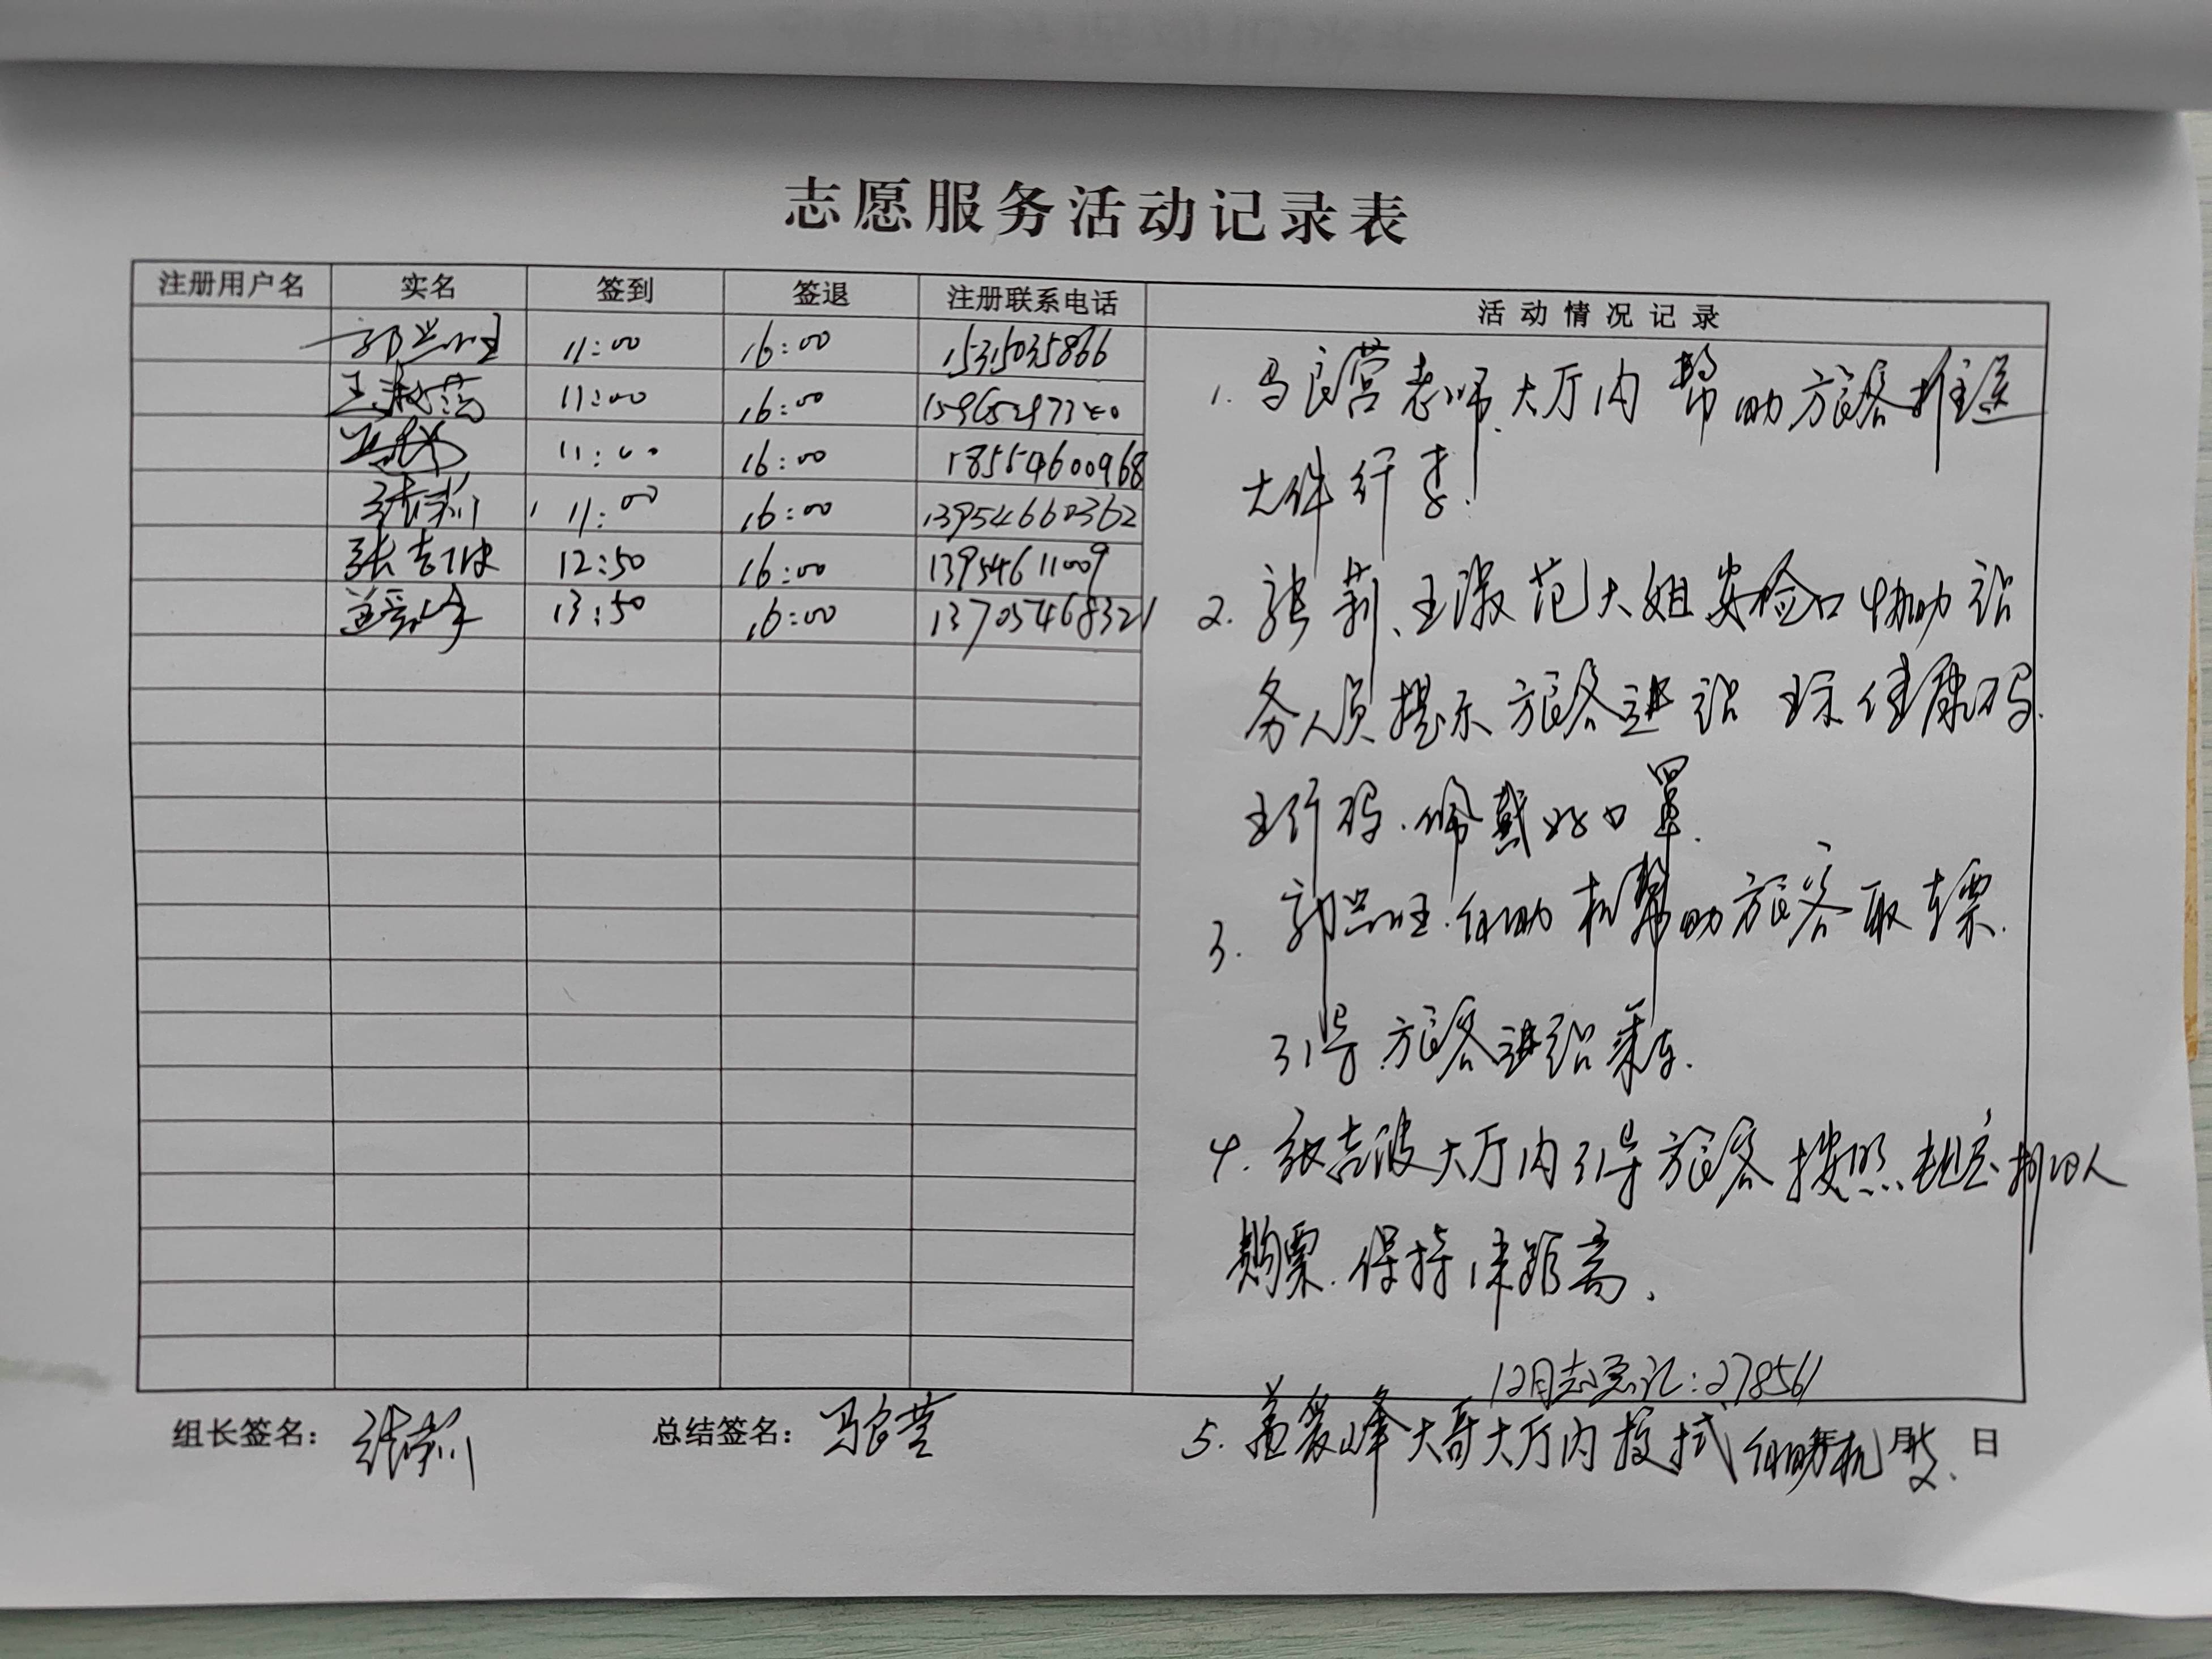 志愿服务活动记录表
注册用户名 实名 签到 签退 注册联系电话 活动情况记录
郭兴旺 11:00 16:00 15315035866
王淑范 11:00 16:00
11:00 16:00 18554600968
张莉 11:00 16:00 13954660362
张吉波 12:50 16:00 13954611009
盖爱峰 13:50 16:00 13705468321
1. 马良营老师大厅内帮助旅客推送
大件行李.
2. 张莉、王淑范大姐安检口协助站
务人员提示旅客进站出示健康码.
行码.佩戴好口罩.
3. 郭兴旺.自助机帮助旅客取车票.
引导旅客进站乘车.
4. 张吉波大厅内引导旅客按照规定排队
购票.保持1米距离.
12月志愿汇:278561
5. 盖爱峰大哥大厅内擦拭自助机
组长签名: 张莉 总结签名: 马良营 年 月 日